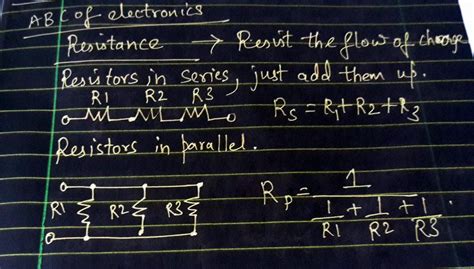 ABC of electronics
Resistance → Resist the flow of charge
Resistors in series, just add them up.
R1 R2 R3
Rs = R1 + R2 + R3
Resistors in parallel.
R1 R2 R3
Rp = 1 / (1/R1 + 1/R2 + 1/R3).